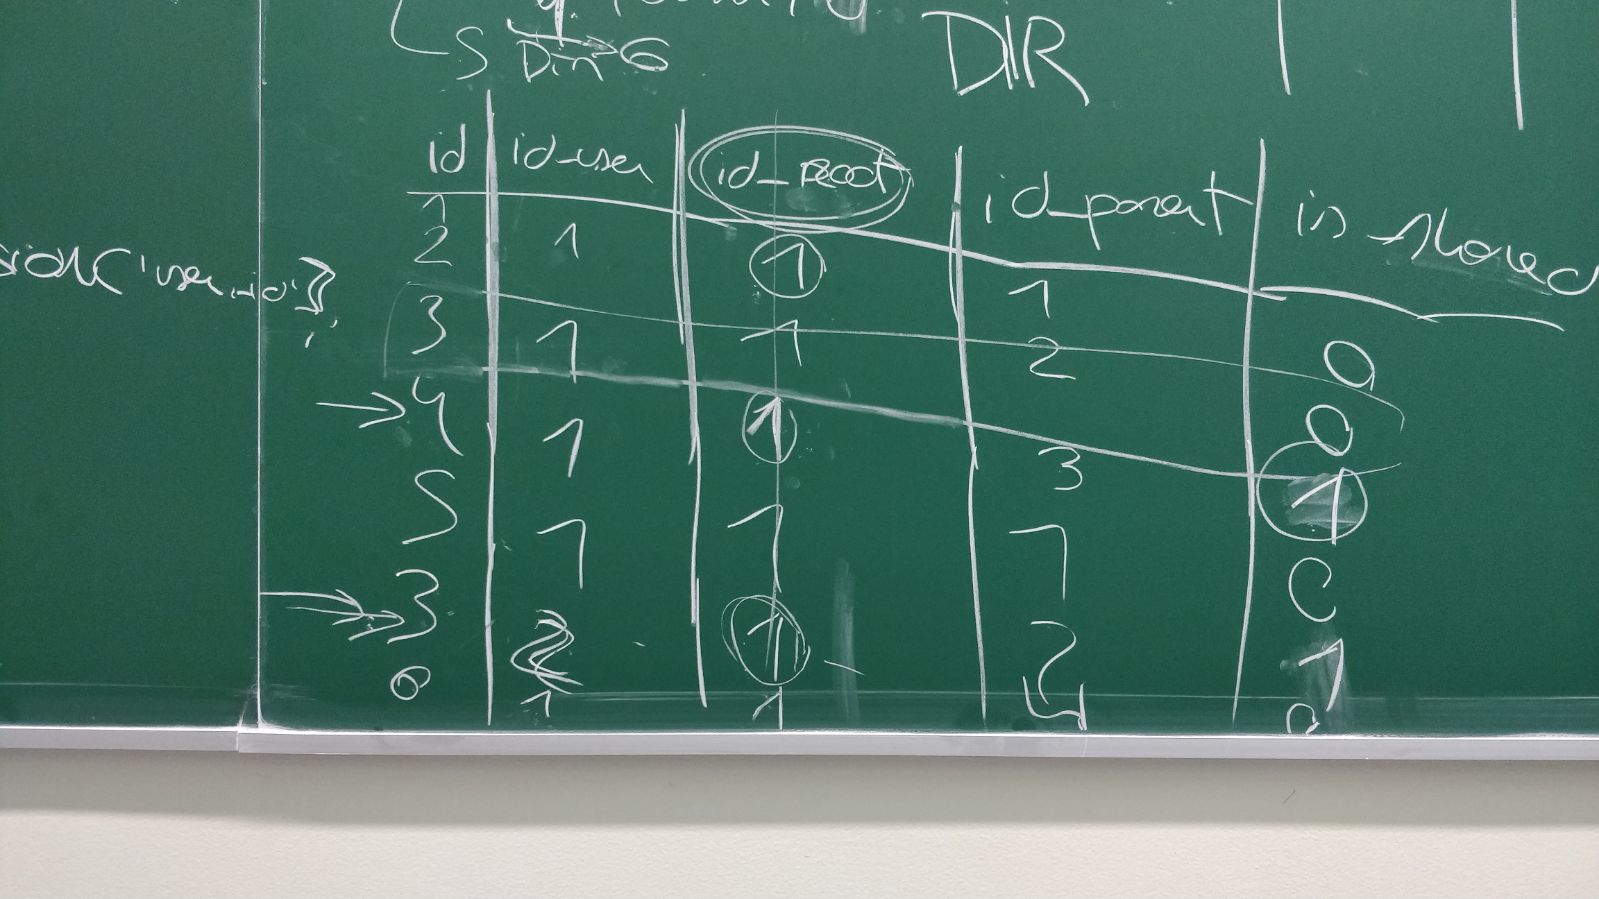 S Din 6
DIR
id id_user id_root id_parent is shared
1
2 1 1 1
3 1 1 2 0
4 1 1 3 0
1
5 1 1 1 0
3 2 1 2 1
6 1 1 4 0